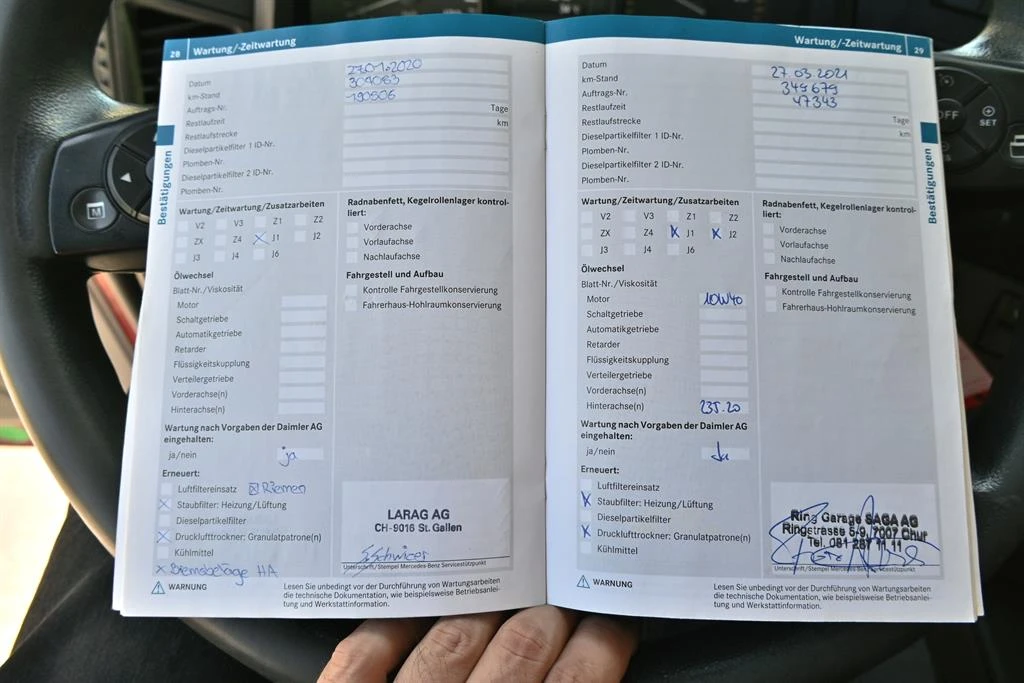 28 Wartung/-Zeitwartung
Datum 27.01.2020
km-Stand 309083
Auftrags-Nr. 190906
Restlaufzeit Tage
Restlaufstrecke km
Dieselpartikelfilter 1 ID-Nr.
Plomben-Nr.
Dieselpartikelfilter 2 ID-Nr.
Plomben-Nr.
Bestätigungen
Wartung/Zeitwartung/Zusatzarbeiten
V2 V3 Z1 Z2
ZX Z4 J1 J2
J3 J4 J6
Ölwechsel
Blatt-Nr./Viskosität
Motor
Schaltgetriebe
Automatikgetriebe
Retarder
Flüssigkeitskupplung
Verteilergetriebe
Vorderachse(n)
Hinterachse(n)
Wartung nach Vorgaben der Daimler AG
eingehalten:
ja/nein ja
Erneuert:
Luftfiltereinsatz Riemen
Staubfilter: Heizung/Lüftung
Dieselpartikelfilter
Drucklufttrockner: Granulatpatrone(n)
Kühlmittel
Bremsbeläge HA
Radnabenfett, Kegelrollenlager kontrol-
liert:
Vorderachse
Vorlaufachse
Nachlaufachse
Fahrgestell und Aufbau
Kontrolle Fahrgestellkonservierung
Fahrerhaus-Hohlraumkonservierung
LARAG AG
CH-9016 St. Gallen
S. Schwizer
Unterschrift/Stempel Mercedes-Benz Servicestützpunkt
WARNUNG
Lesen Sie unbedingt vor der Durchführung von Wartungsarbeiten
die technische Dokumentation, wie beispielsweise Betriebsanlei-
tung und Werkstattinformation.
Wartung/-Zeitwartung 29
Datum 27.03.2021
km-Stand 349679
Auftrags-Nr. 47343
Restlaufzeit Tage
Restlaufstrecke km
Dieselpartikelfilter 1 ID-Nr.
Plomben-Nr.
Dieselpartikelfilter 2 ID-Nr.
Plomben-Nr.
Bestätigungen
Wartung/Zeitwartung/Zusatzarbeiten
V2 V3 Z1 Z2
ZX Z4 J1 J2
J3 J4 J6
Ölwechsel
Blatt-Nr./Viskosität
Motor 10W40
Schaltgetriebe
Automatikgetriebe
Retarder
Flüssigkeitskupplung
Verteilergetriebe
Vorderachse(n)
Hinterachse(n) 235.20
Wartung nach Vorgaben der Daimler AG
eingehalten:
ja/nein Ja
Erneuert:
Luftfiltereinsatz
Staubfilter: Heizung/Lüftung
Dieselpartikelfilter
Drucklufttrockner: Granulatpatrone(n)
Kühlmittel
Radnabenfett, Kegelrollenlager kontrol-
liert:
Vorderachse
Vorlaufachse
Nachlaufachse
Fahrgestell und Aufbau
Kontrolle Fahrgestellkonservierung
Fahrerhaus-Hohlraumkonservierung
Ring Garage SAGA AG
Ringstrasse 5-9, 7007 Chur
Tel. 081 287 11 11
Unterschrift/Stempel Mercedes-Benz Servicestützpunkt
WARNUNG
Lesen Sie unbedingt vor der Durchführung von Wartungsarbeiten
die technische Dokumentation, wie beispielsweise Betriebsanlei-
tung und Werkstattinformation.
M
OFF
SET